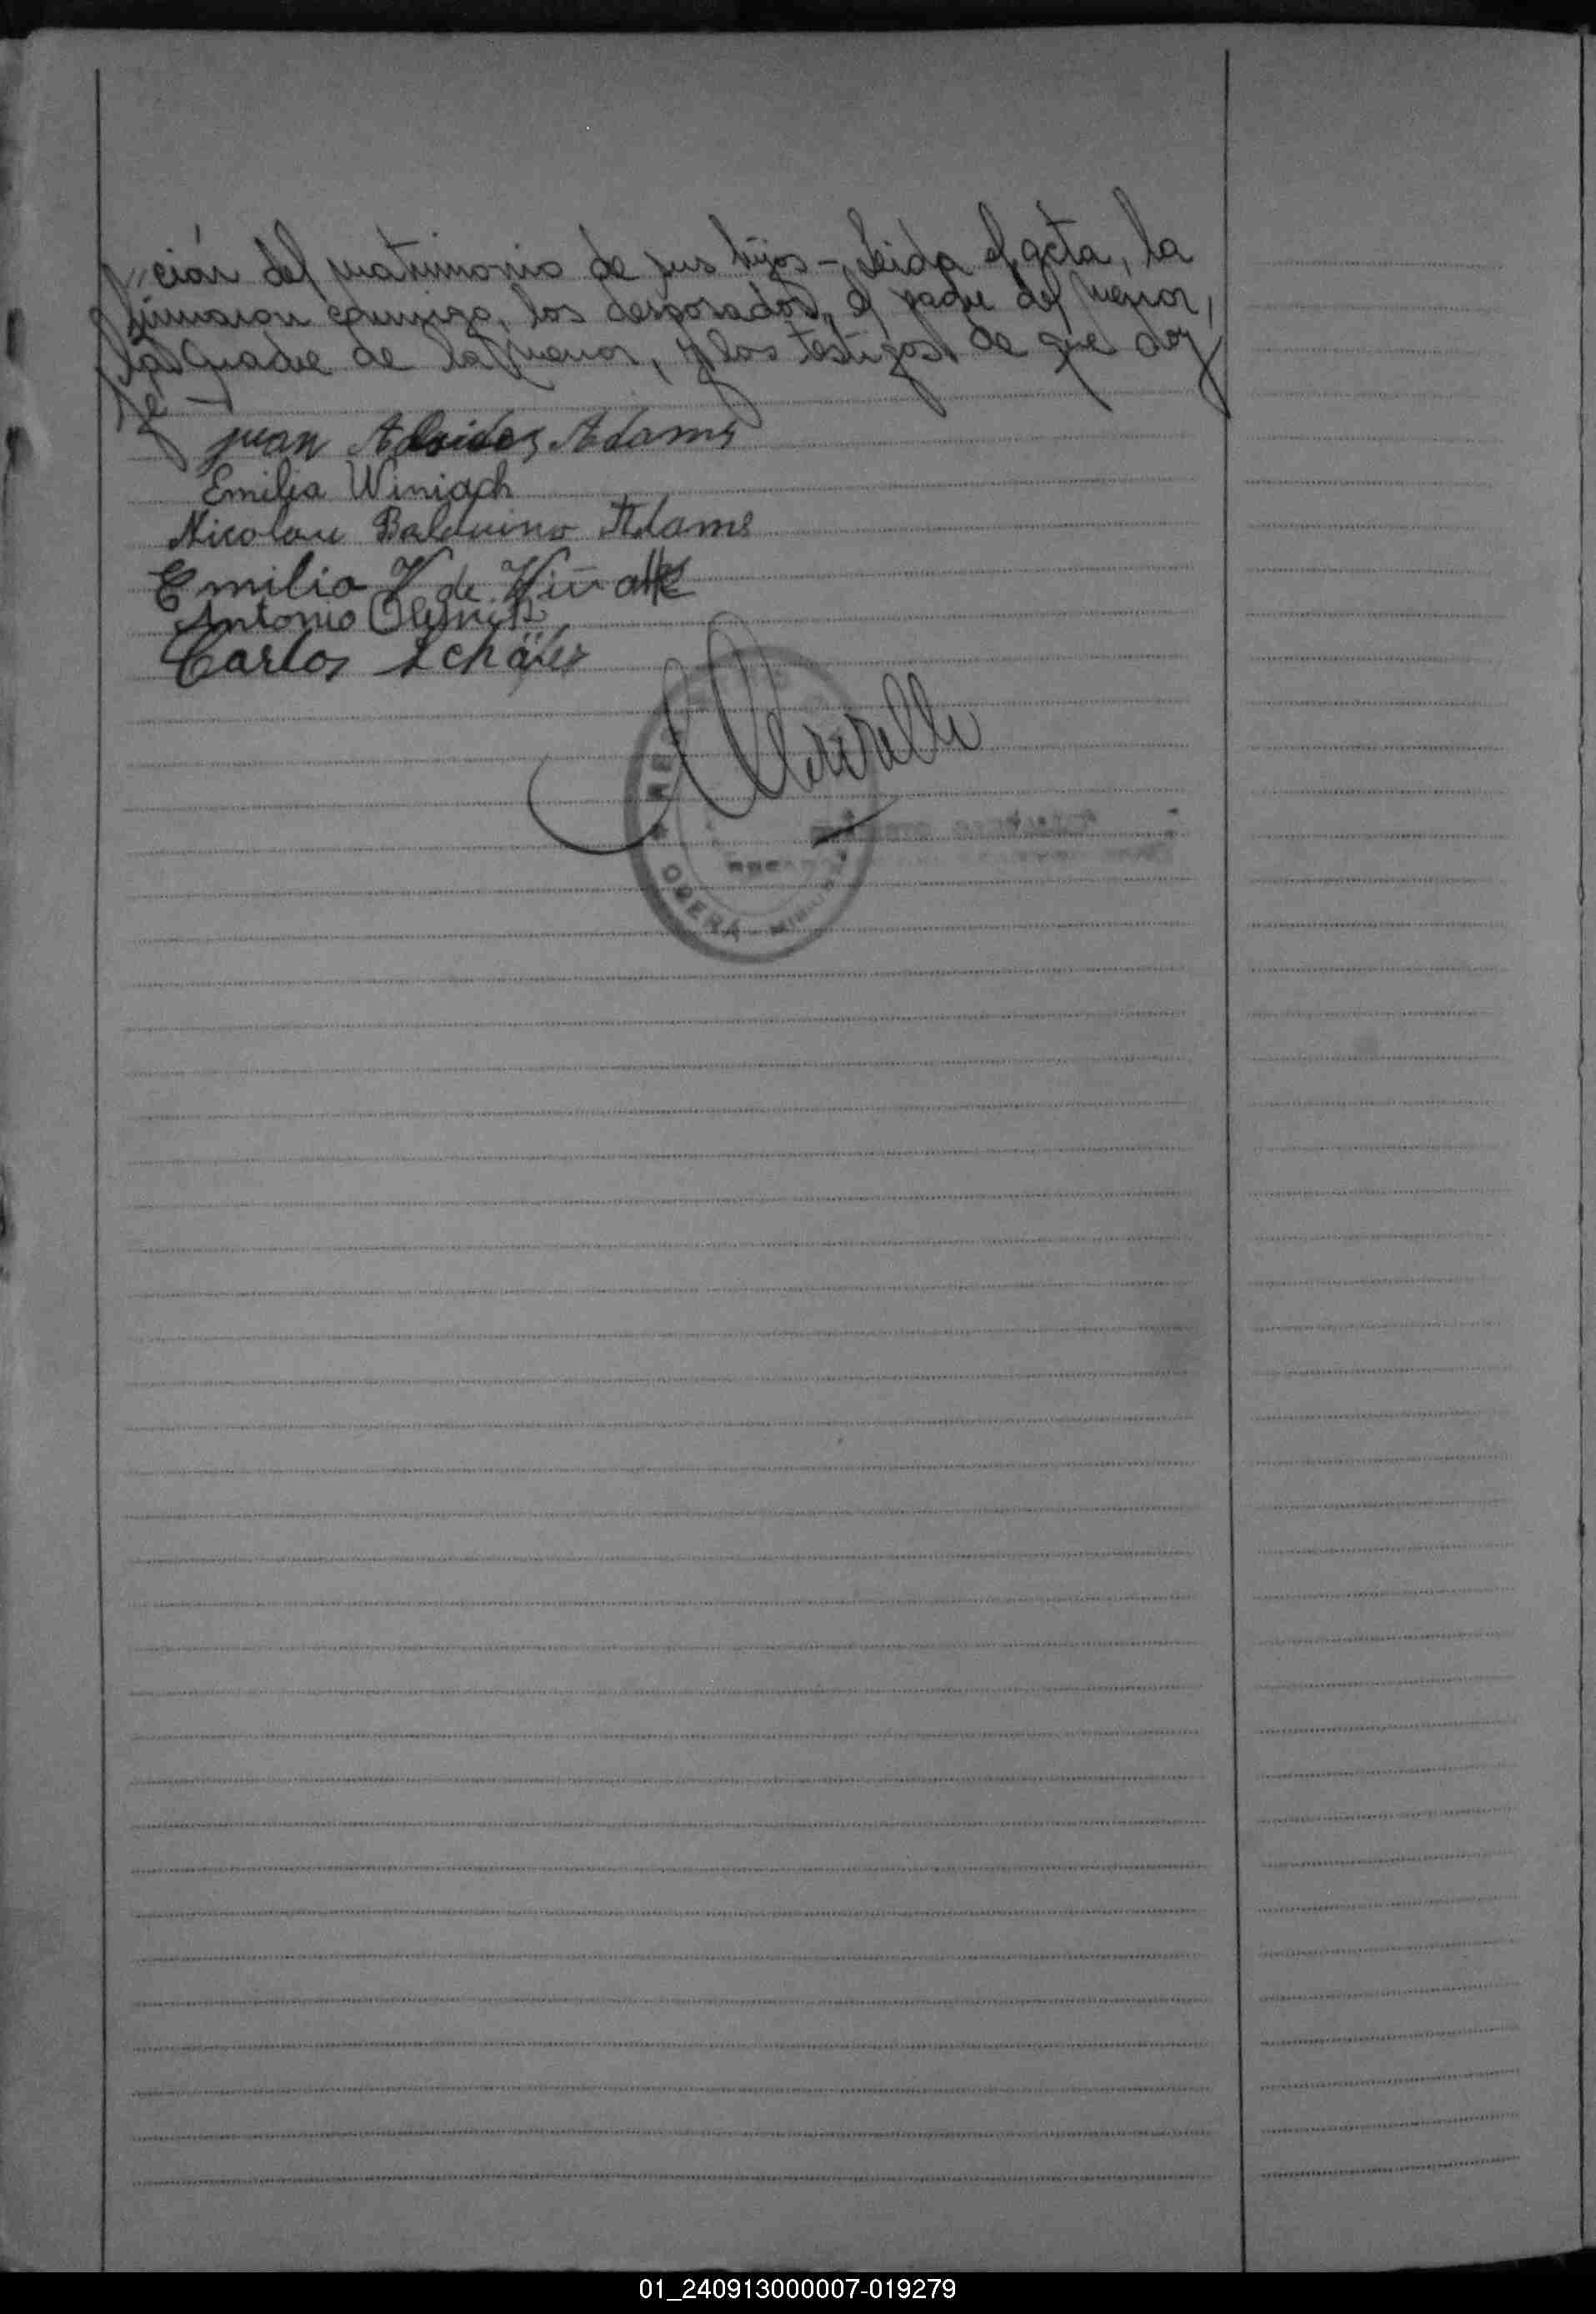 ción del matrimonio de sus hijos - Leida el acta, la
firmaron conmigo, los desposados, el padre del menor,
la madre de la menor, y los testigos de que doy
fe -
juan Alcides Adams
Emilia Winiach
Nicolau Balduino Adams
Emilia V de
Antonio Olejnik
Carlos Schäfer
OBERÁ - MISIONES
01_240913000007-019279